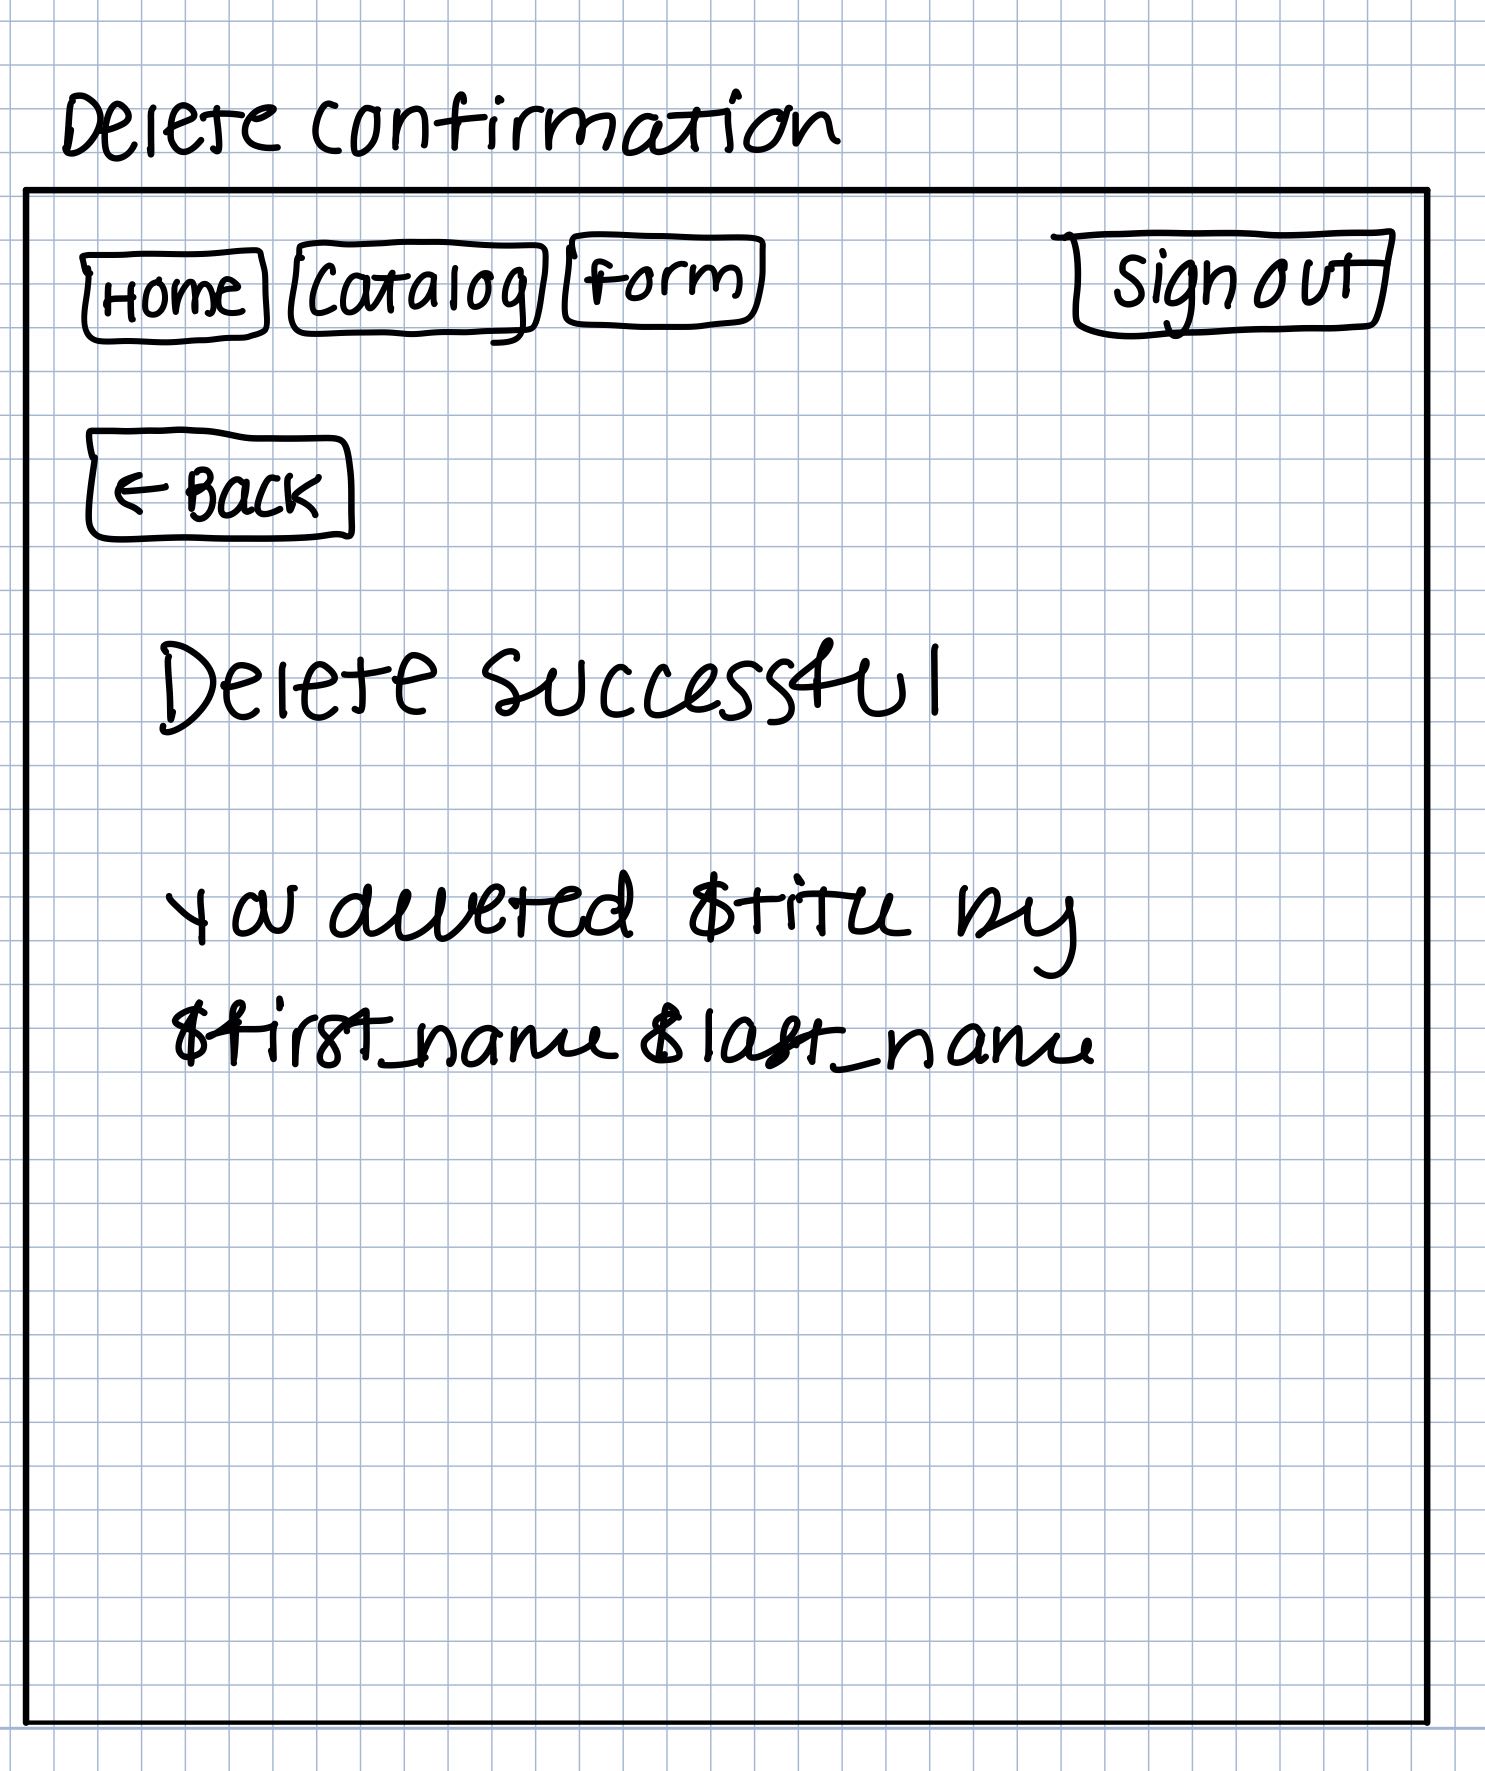 Delete confirmation
Home Catalog Form Sign out
← Back
Delete Successful
You deleted $title by
$first_name $last_name